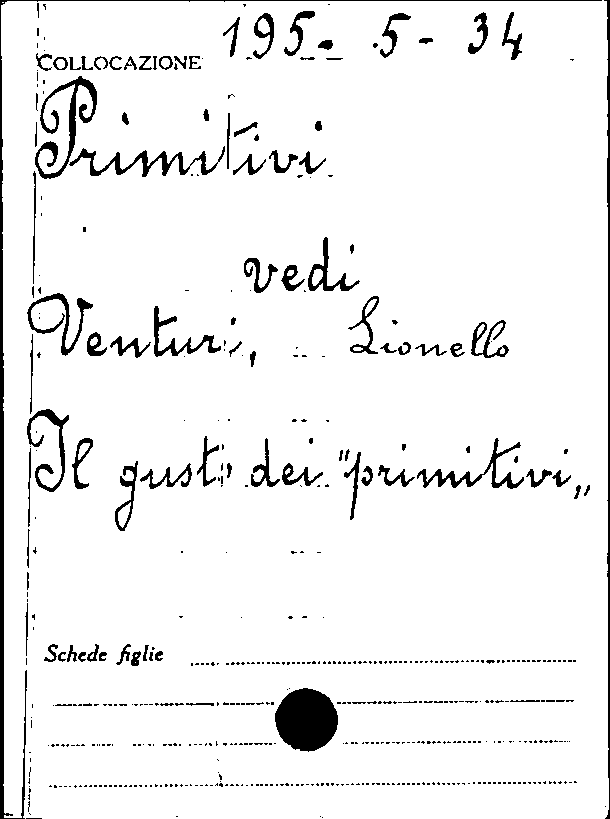 COLLOCAZIONE 195-5-34
Primitivi
vedi
Venturi, Lionello
Il gusto dei "primitivi„
Schede figlie